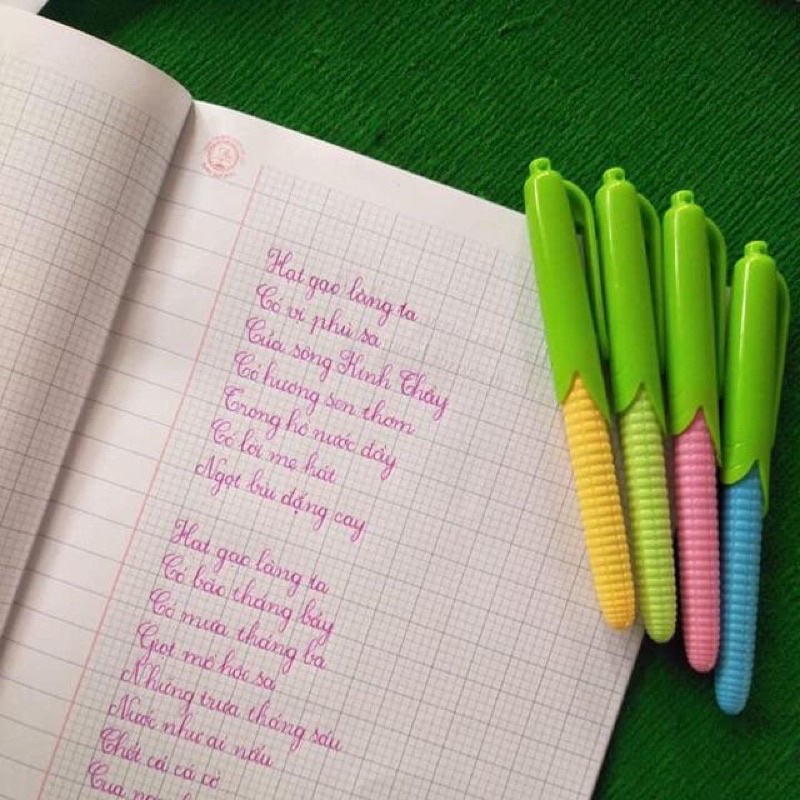 Hạt gạo làng ta
Có vị phù sa
Của sông Kinh Thầy
Có hương sen thơm
Trong hồ nước đầy
Có lời mẹ hát
Ngọt bùi đắng cay
Hạt gạo làng ta
Có bão tháng bảy
Có mưa tháng ba
Giọt mồ hôi sa
Những trưa tháng sáu
Nước như ai nấu
Chết cả cá cờ
Cua